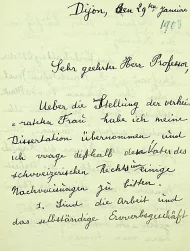 Dijon, den 29ten Januar
1903
Sehr geehrter Herr Professor,
Ueber die Stellung der verhei-
rateten Frau habe ich meine
Dissertation übernommen und
ich wage deshalb den Vater des
schweizerischen Rechts einige
Nachweisungen zu bitten.
1. Sind die Arbeit und
das selbständige Erwerbsgeschäft